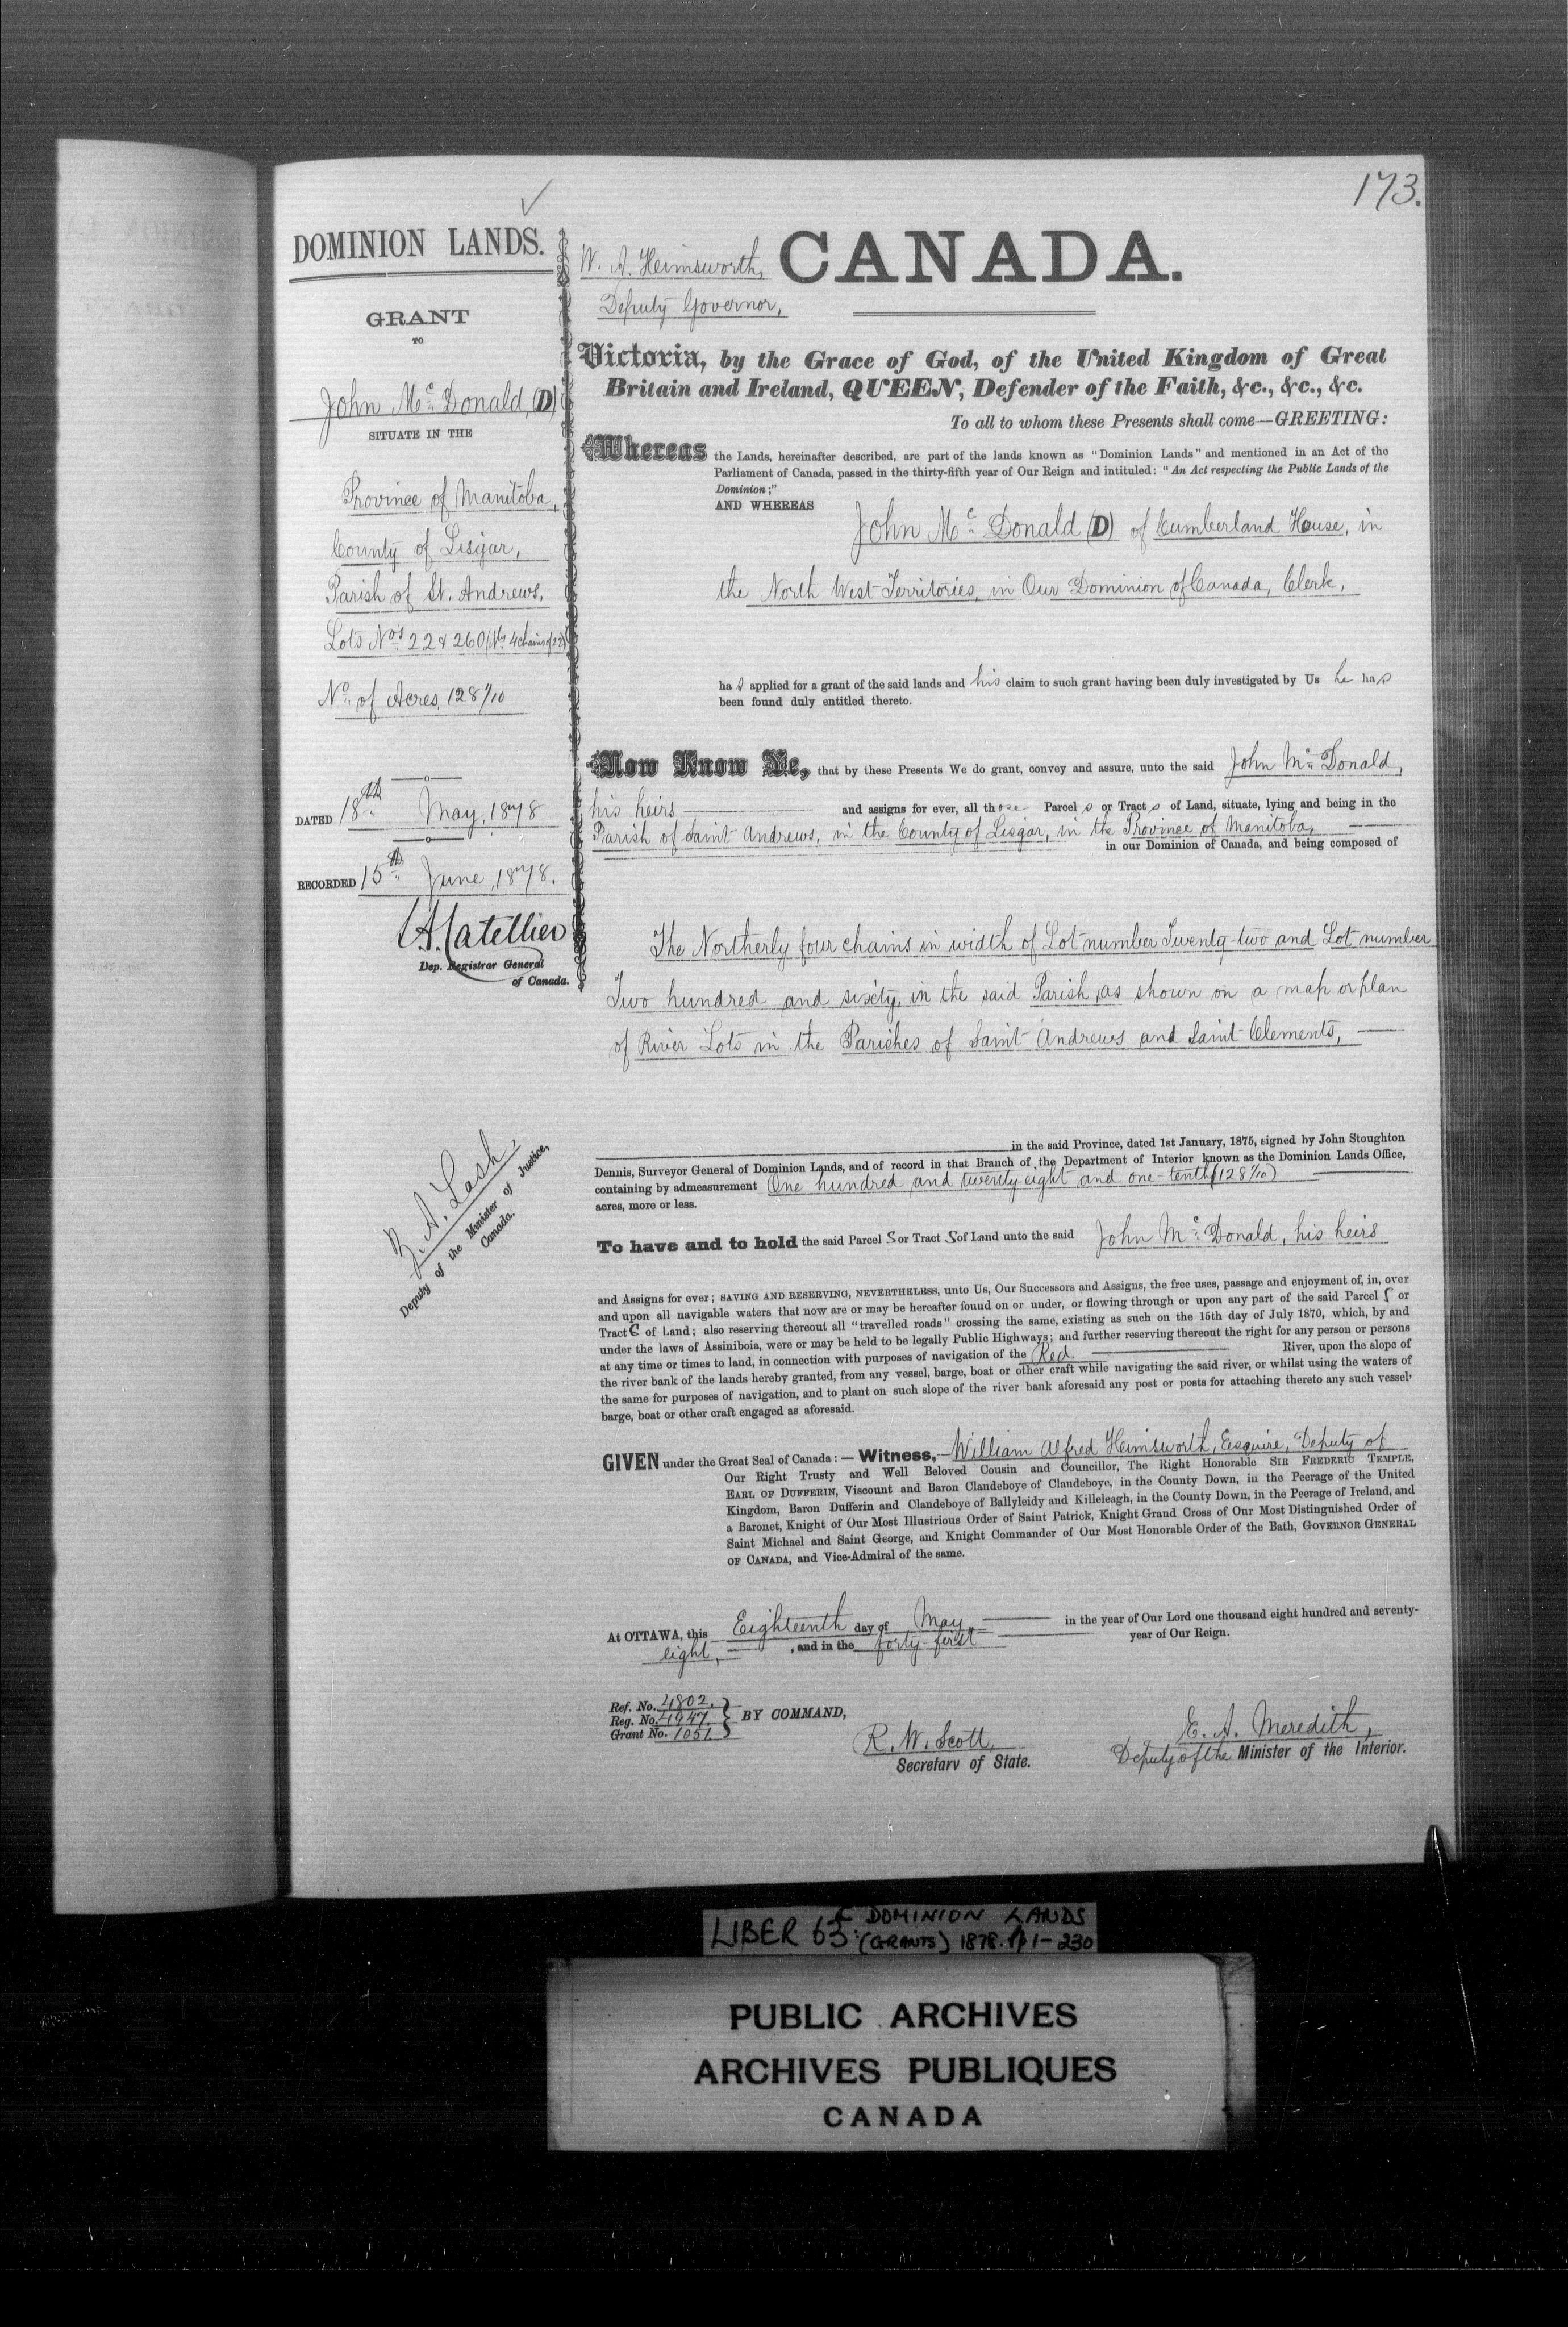 173.
DOMINION LANDS.
GRANT
TO
John Mc Donald (D)
SITUATE IN THE
Province of Manitoba,
County of Lisgar,
Parish of St. Andrews,
Lots Nos 22 & 260 (Nly 4 chains of 22)
No. of Acres, 128 1/10
DATED 18th May, 1878
RECORDED 15th June, 1878.
Dep. Registrar General
of Canada.
Z. A. Lash,
Deputy of the Minister of Justice,
Canada.
W. A. Himsworth,
Deputy Governor,
CANADA.
Victoria, by the Grace of God, of the United Kingdom of Great
Britain and Ireland, QUEEN, Defender of the Faith, &c., &c., &c.
To all to whom these Presents shall come—GREETING:
Whereas the Lands, hereinafter described, are part of the lands known as "Dominion Lands" and mentioned in an Act of the
Parliament of Canada, passed in the thirty-fifth year of Our Reign and intituled: "An Act respecting the Public Lands of the
Dominion;"
AND WHEREAS
John Mc Donald (D) of Cumberland House, in
the North West Territories, in Our Dominion of Canada, Clerk,
has applied for a grant of the said lands and his claim to such grant having been duly investigated by Us he has
been found duly entitled thereto.
Now Know Ye, that by these Presents We do grant, convey and assure, unto the said John Mc Donald,
his heirs and assigns for ever, all those Parcels or Tracts of Land, situate, lying and being in the
Parish of Saint Andrews, in the County of Lisgar, in the Province of Manitoba,
in our Dominion of Canada, and being composed of
The Northerly four chains in width of Lot number Twenty-two and Lot number
Two hundred and sixty, in the said Parish, as shown on a map or plan
of River Lots in the Parishes of Saint Andrews and Saint Clements,
in the said Province, dated 1st January, 1875, signed by John Stoughton
Dennis, Surveyor General of Dominion Lands, and of record in that Branch of the Department of Interior known as the Dominion Lands Office,
containing by admeasurement One hundred and twenty eight and one-tenth (128 1/10)
acres, more or less.
To have and to hold the said Parcel S or Tract S of Land unto the said John Mc Donald, his heirs
and Assigns for ever; SAVING AND RESERVING, NEVERTHELESS, unto Us, Our Successors and Assigns, the free uses, passage and enjoyment of, in, over
and upon all navigable waters that now are or may be hereafter found on or under, or flowing through or upon any part of the said Parcel S or
Tract S of Land; also reserving thereout all "travelled roads" crossing the same, existing as such on the 15th day of July 1870, which, by and
under the laws of Assiniboia, were or may be held to be legally Public Highways; and further reserving thereout the right for any person or persons
at any time or times to land, in connection with purposes of navigation of the Red River, upon the slope of
the river bank of the lands hereby granted, from any vessel, barge, boat or other craft while navigating the said river, or whilst using the waters of
the same for purposes of navigation, and to plant on such slope of the river bank aforesaid any post or posts for attaching thereto any such vessel,
barge, boat or other craft engaged as aforesaid.
GIVEN under the Great Seal of Canada:—Witness,—William Alfred Himsworth, Esquire, Deputy of
Our Right Trusty and Well Beloved Cousin and Councillor, The Right Honorable SIR FREDERIC TEMPLE,
EARL OF DUFFERIN, Viscount and Baron Clandeboye of Clandeboye, in the County Down, in the Peerage of the United
Kingdom, Baron Dufferin and Clandeboye of Ballyleidy and Killeleagh, in the County Down, in the Peerage of Ireland, and
a Baronet, Knight of Our Most Illustrious Order of Saint Patrick, Knight Grand Cross of Our Most Distinguished Order of
Saint Michael and Saint George, and Knight Commander of Our Most Honorable Order of the Bath, GOVERNOR GENERAL
OF CANADA, and Vice-Admiral of the same.
At OTTAWA, this Eighteenth day of May, in the year of Our Lord one thousand eight hundred and seventy-
eight, , and in the forty first year of Our Reign.
Ref. No. 4802.
Reg. No. 4947.
Grant No. 1051.
BY COMMAND,
R. W. Scott,
Secretary of State.
E. A. Meredith,
Deputy of the Minister of the Interior.
LIBER 63: DOMINION LANDS
(GRANTS) 1878. pp 1-230
PUBLIC ARCHIVES
ARCHIVES PUBLIQUES
CANADA